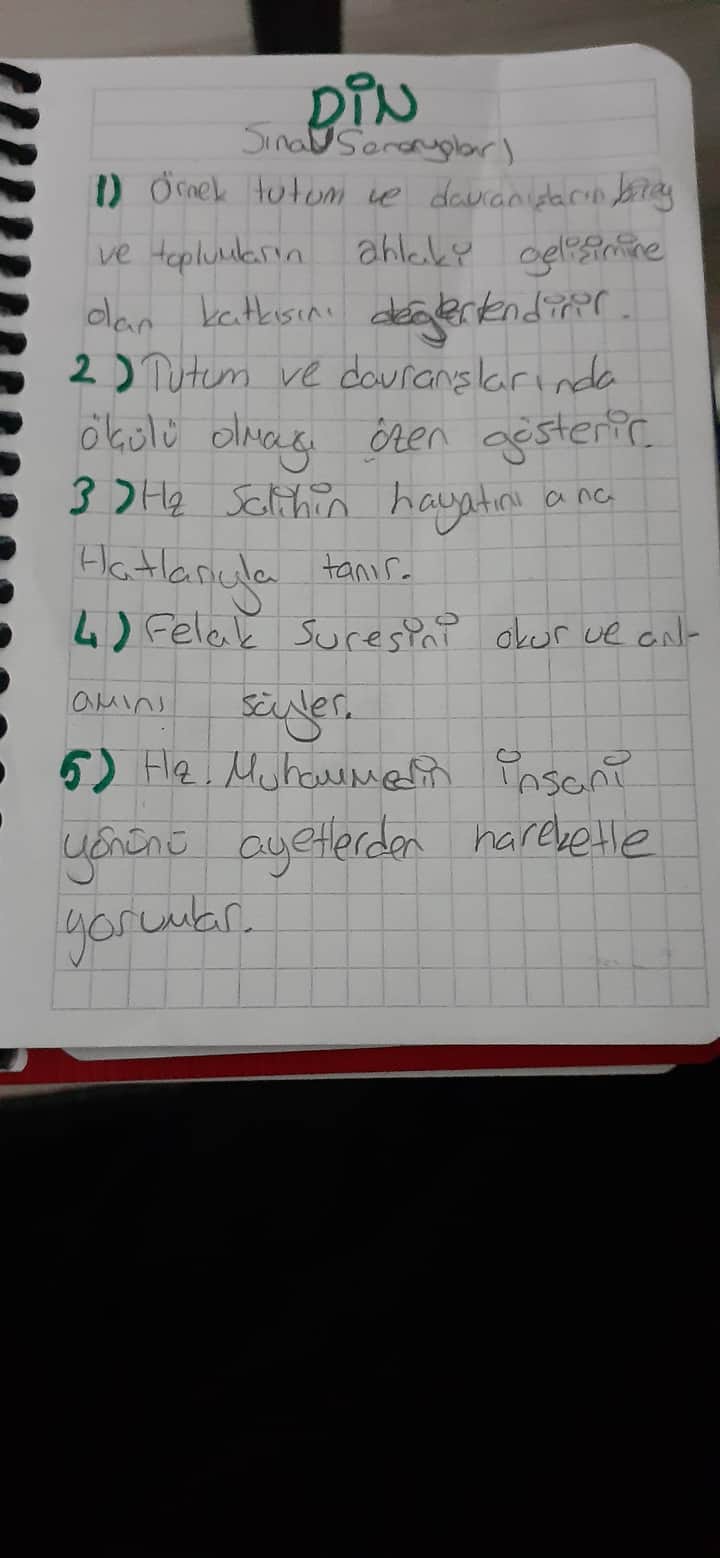 DİN
Sınav Senaryoları
1) Örnek tutum ve davranışların birey
ve toplumların ahlaki gelişimine
olan katkısını değerlendirir.
2) Tutum ve davranışlarında
ölçülü olmaya özen gösterir.
3) Hz Salihin hayatını ana
Hatlarıyla tanır.
4) Felak suresini okur ve anl-
amını söyler.
5) Hz. Muhammedin insani
yönünü ayetlerden hareketle
yorumlar.